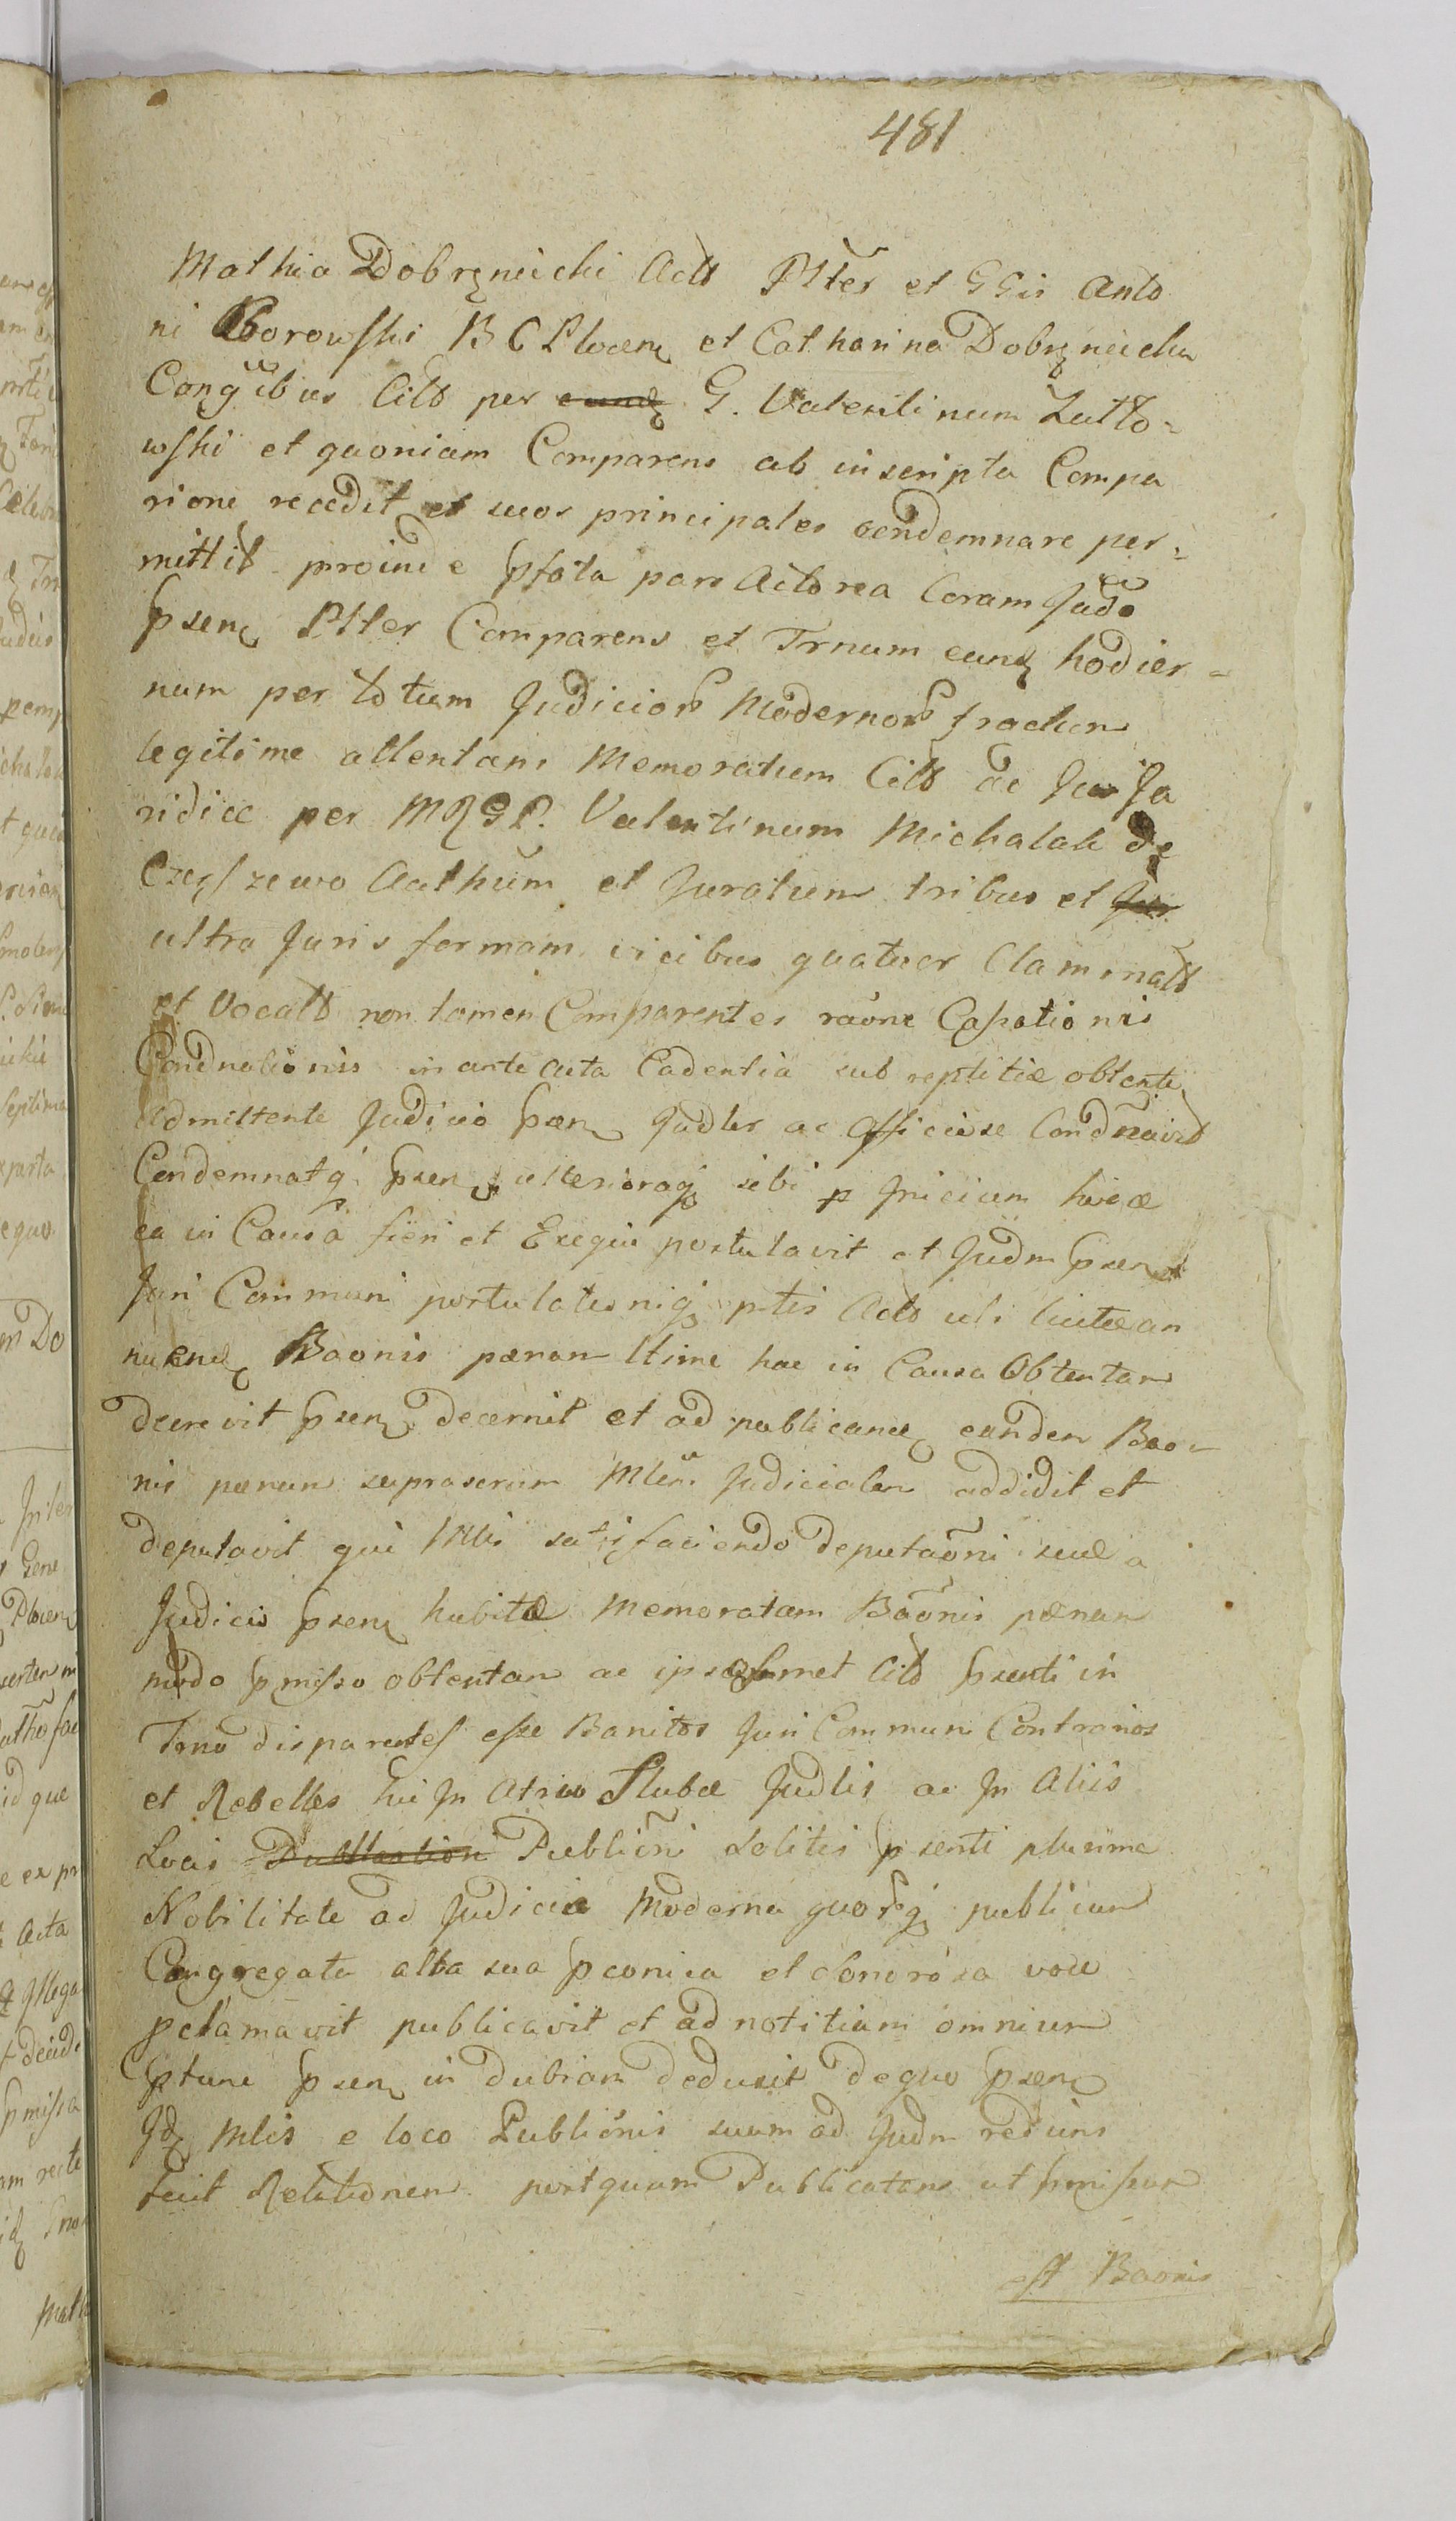 481
Mathia Dobrzniecki Actt Plter et GGis Anto
ni Borowski B C Plocenę et Catharina Dobrznicka
Conğibus Citt per G. Valentinum Lutto=
wski et quoniam Comparens ab inscripta Compa
rione recedit et suos principales condemnare per=
mittit proinde pfata pars Actorea Coram Judo
psenę Plter Comparens et Trnum eundę hodier=
num per totum Judiciorb Modernorb tractum
legitime attentans Memoratum Citt ac Jus Ju
ridice per MRGP. Valentinum Michalak de
Czeszewo Aathũm et Juratum tribus et
ultra Juris formam vicibus quatuor Clammatt
et Vocatt non tamen Comparentes raõne Cassationis
Condnationis in ante acta Cadentia sub reptitiæ obtentę
Admittente Judicio psenę Judlr ac officiose Condñavit
Condemnatqȝ psenę ulterioraqȝ sibi p Inicium hicce
ea in Causa fieri et Exequi postulavit et Judm psenę
Juri Communi postulatesniqȝ ptis Actt uti licitæ an
nuendę Baonis pœnam ltime hac in Causa Obtentam
decrevit psenę decernit et ad publicandę eandem Bao=
nis pœnam suprascrum Mlem Judicialem addidit et
deputavit qui Mlis satisfaciendo deputaõni suæ a
Judicio psenę habitæ memoratam Baõnis pœnam
modo pmisso obtentam ac ipsosmet Citt psenti in
Trno disparentes esse Banitos Juri Communi Contrarios
et Rebelles hic In Atrio Stubæ Judlis ac In Aliis
Locis Publicñi Solitis psenti plurima
Nobilitate ad Judicia Moderna quorbqȝ publicum
Congregata alta sua pconica et Sonorósa voce
pclamavit publicavit et ad notitiam omnium
ptune psenę in dubiam deduxit de quo psenę
Idę Mlis e loco Publiõnis suum ad Judm rediens
fecit Relationem postquam Publicatam ut pmissum
est Baonis